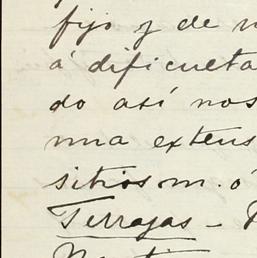 fijo y de
á dificulta
do así nos
una extens
sitios m. ó
Terrajas –